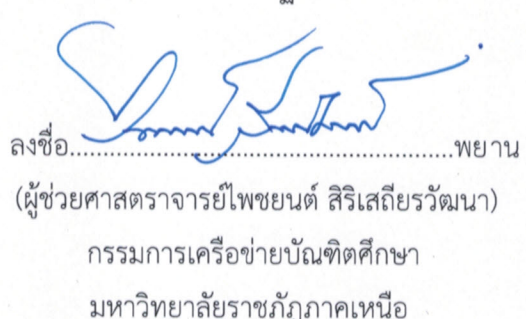 ลงชื่อ......................................................พยาน
(ผู้ช่วยศาสตราจารย์ไพชยนต์ สิริเสถียรวัฒนา)
กรรมการเครือข่ายบัณฑิตศึกษา
มหาวิทยาลัยราชภัฏภาคเหนือ